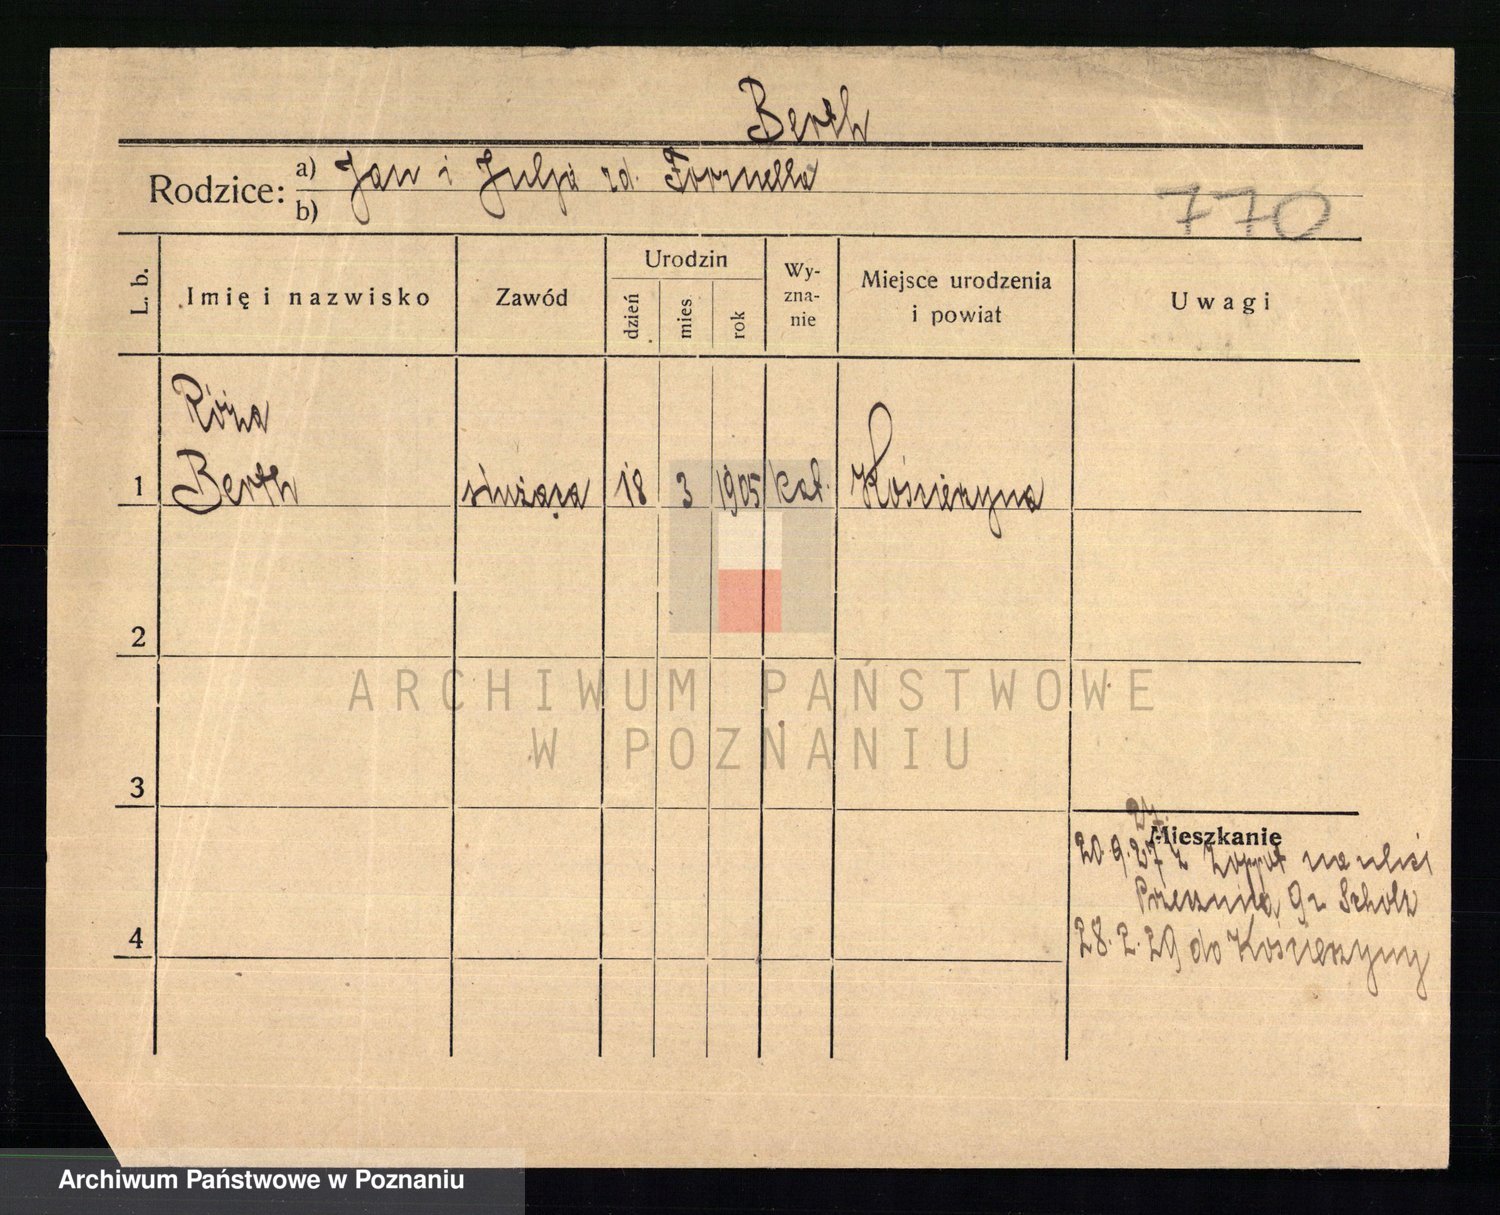 Berth
Rodzice: a) Jan i Julja zd. Formella
b)
770
L. b. Imię i nazwisko Zawód Urodzin dzień mies. rok Wy-zna-nie Miejsce urodzenia i powiat Uwagi
Róża
1 Berth służąca 18 3 1905 kat. Kościerzyna
2
ARCHIWUM PAŃSTWOWE
W POZNANIU
3
27.
Mieszkanie
20.9.27 z Zoppot na ulici
Przecznica 9 Scholz
4 28.2.29 do Kościerzyny
Archiwum Państwowe w Poznaniu